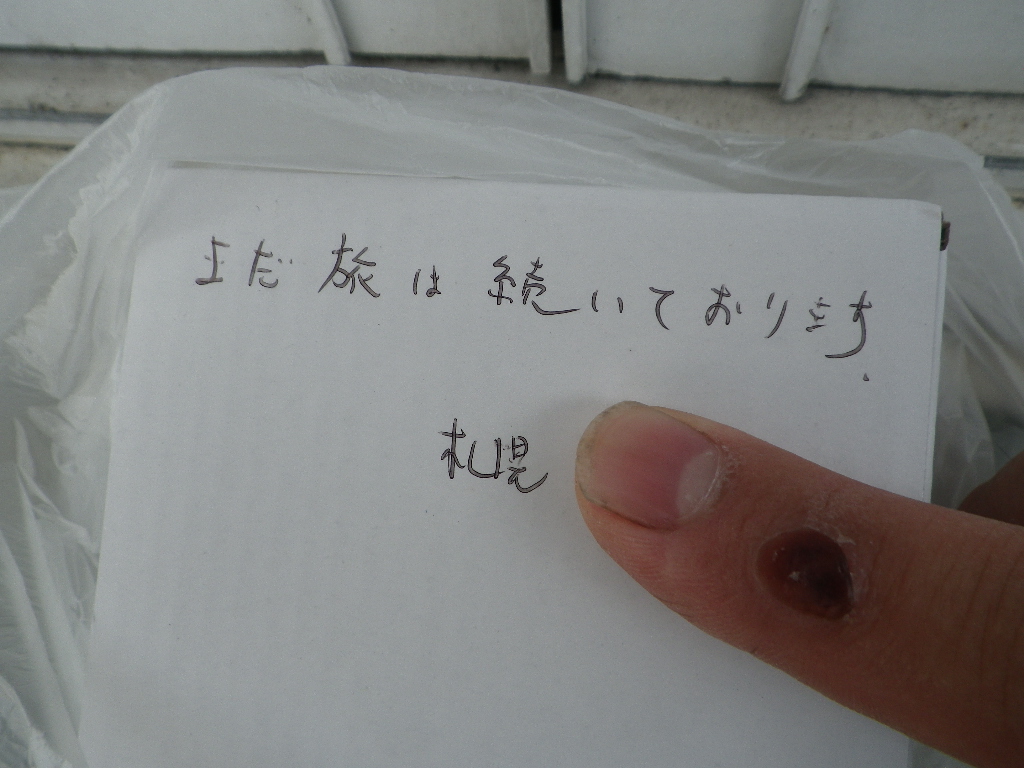 まだ旅は続いております.
札幌